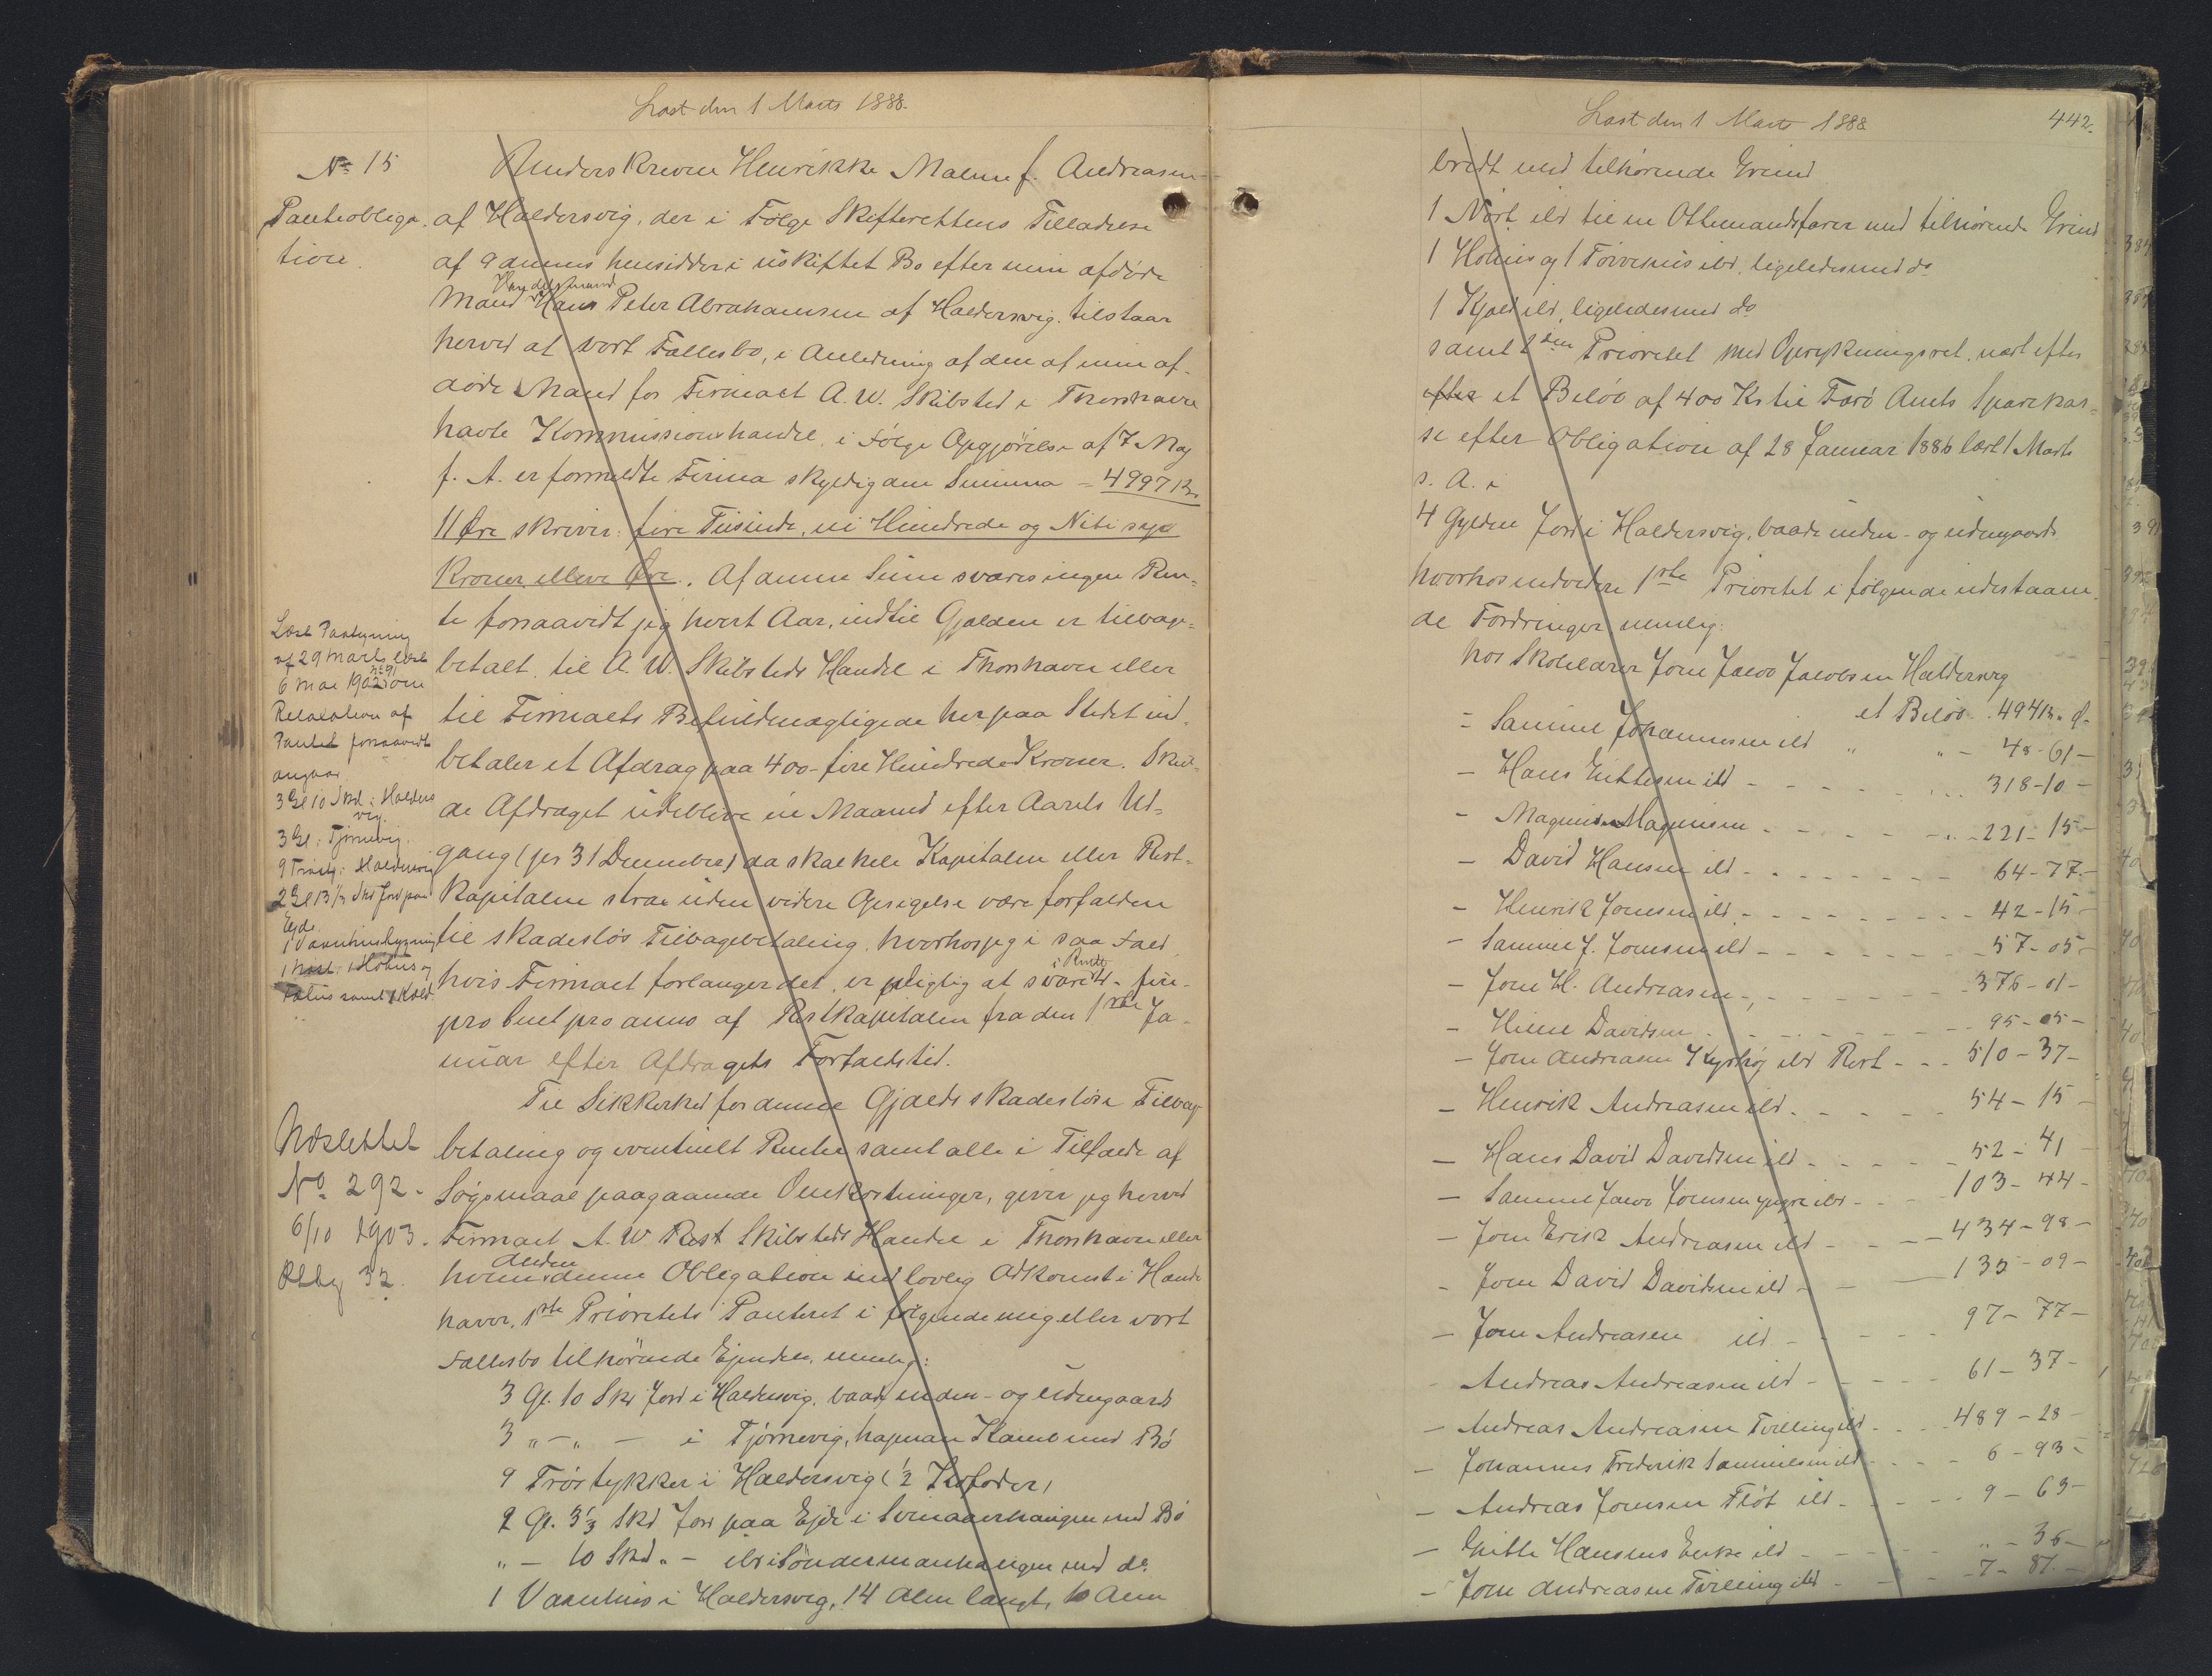 Læst den 1 Marts 1888.
No 15
Panteobliga-
tion.
Underskrevne Henrikke Malene f. Andreasen
af Haldersvig, der i Følge Skifterettens Tilladelse
af 9 dennes hensidder i uskiftet Bo efter min afdøde
Handelsmand
Mand Hans Peter Abrahamsen af Haldersvig tilstaar
herved at vort Fællesbo, i Anledning af den af min af-
døde Mand for Firmaet A. W. Skibsted i Thorshavn
havte Kommissionshandel, i Følge Opgjørelse af 7 Maj
f. A. er formeldte Firma skyldig den Summa = 4997 Kr.
11 Øre skriver: fire Tusinde, ni Hundrede og Niti syv
Kroner elleve Øre. Af denne Sum svares ingen Ren-
te forsaavidt jeg hvert Aar, indtil Gjælden er tilbage-
betalt, til A. W. Skibsteds Handel i Thorshavn eller
til Firmaets Befuldmægtigede her paa Stedet ind-
betaler et Afdrag paa 400 - fire Hundrede Kroner. Skul-
de Afdraget udeblive en Maaned efter Aarets Ud-
gang (pr 31 December) da skal hele Kapitalen eller Rest-
kapitalen strax uden videre Opsigelse være forfalden
til skadesløs Tilbagebetaling, hvorhos jeg i saa Fald
i Rente
hvis Firmaet forlanger det, er pligtig at svare 4 - fire -
pro Cent pro anno af Restkapitalen fra den 1ste Ja-
nuar efter Afdragets Forfaldstid.
Til Sikkerhed for denne Gjælds skadesløse Tilbage-
betaling og eventuelt Rente samt alle i Tilfælde af
Søgsmaal paagaaende Omkostninger, giver jeg herved
Firmaet A. W. Skibsteds Handel i Thorshavn eller
Anden
hvem denne Obligation med lovlig Adkomst i Hænde
haver, 1ste Prioritets Panteret i følgende mig eller vort
Fællesbo tilhørende Ejendele, nemlig:
3 Gl. 10 Skd Jord i Haldersvig, baade inden- og udengaards
3 " - " - i Tjørnevig, hagman Kamb med Bø
9 Trøstykker i Haldersvig (½ Kofoder)
2 Gl. 3⅓ Skd Jord paa Ejde i med Bø
" - 10 Skd " - ibd i Søndermanhaugen med do
1 Vaanhus i Haldersvig, 14 Alen langt, 10 Alen
Læst Paategning
af 29 Marts læst
6 Mai 1902 No 91 om
Relaxation af
Pantet forsaavidt
angaar
3 Gl 10 Skd i Halders
vig.
3 Gl i Tjørnevig.
9 Trøstk: i Haldersvig
2 Gl 13⅓ Skd Jord paa
Ejde
1 Vaanhusbygning
1 Nøst, 1 Høhus og
samt 1 Kjæld.
Udslettet
No 292 -
6/10 1903.
Rtbg 32.
Læst den 1 Marts 1888
442.
bredt med tilhørende Grund
1 Nøst ibd til en Ottemandsfarer med tilhørende Grund
1 Høhus og 1 Tørvehus ibd, ligeledes med do
1 Kjæld ibd, ligeledes med do
samt 2den Prioritet med Oprykningsret, næst efter
efter et Beløb af 400 Kr til Færø Amts Sparekas-
se efter Obligation af 28 Januar 1886 læst 1 Marts
s. A. i
4 Gylden Jord i Haldersvig, baade inden- og udengaards
hvorhos endvidere 1ste Prioritet i følgende udestaaen-
de Fordringer nemlig:
hos Skolelærer Joen Jacob Jacobsen Haldersvig
et Beløb 494 Kr. Ø.
- Samuel Johannesen ibd " " - 48 - 61 -
- Hans Guttesen ibd - 318 - 10 -
- Magnus Magnusen - 221 - 15 -
- David Hansen ibd - 64 - 77 -
- Henrik Joensen ibd - 42 - 15 -
- Samuel J. Joensen ibd - 57 - 05 -
- Joen H. Andreasen - 376 - 01 -
- Davidsen - 95 - 05 -
- Joen Andreasen Kyrhøj ibd Rest - 510 - 37 -
- Henrik Andreasen ibd - 54 - 15 -
- Hans David Davidsen ibd - 52 - 41 -
- Samuel Jacob Joensen yngre ibd - 103 - 44 -
- Joen Erik Andreasen ibd - 434 - 98 -
- Joen David Davidsen ibd - 135 - 09 -
- Joen Andreasen ibd - 97 - 77 -
- Andreas Andreasen ibd - 61 - 37 -
- Andreas Andreasen Tvilling ibd - 489 - 28 -
- Johannes Frederik Samuelsen ibd - 6 - 93 -
- Andreas Joensen Fløt ibd - 9 - 63 -
- Gutte Hansens Enke ibd - " - 36 -
- Joen Andreasen Tvilling ibd - 7 - 87 -